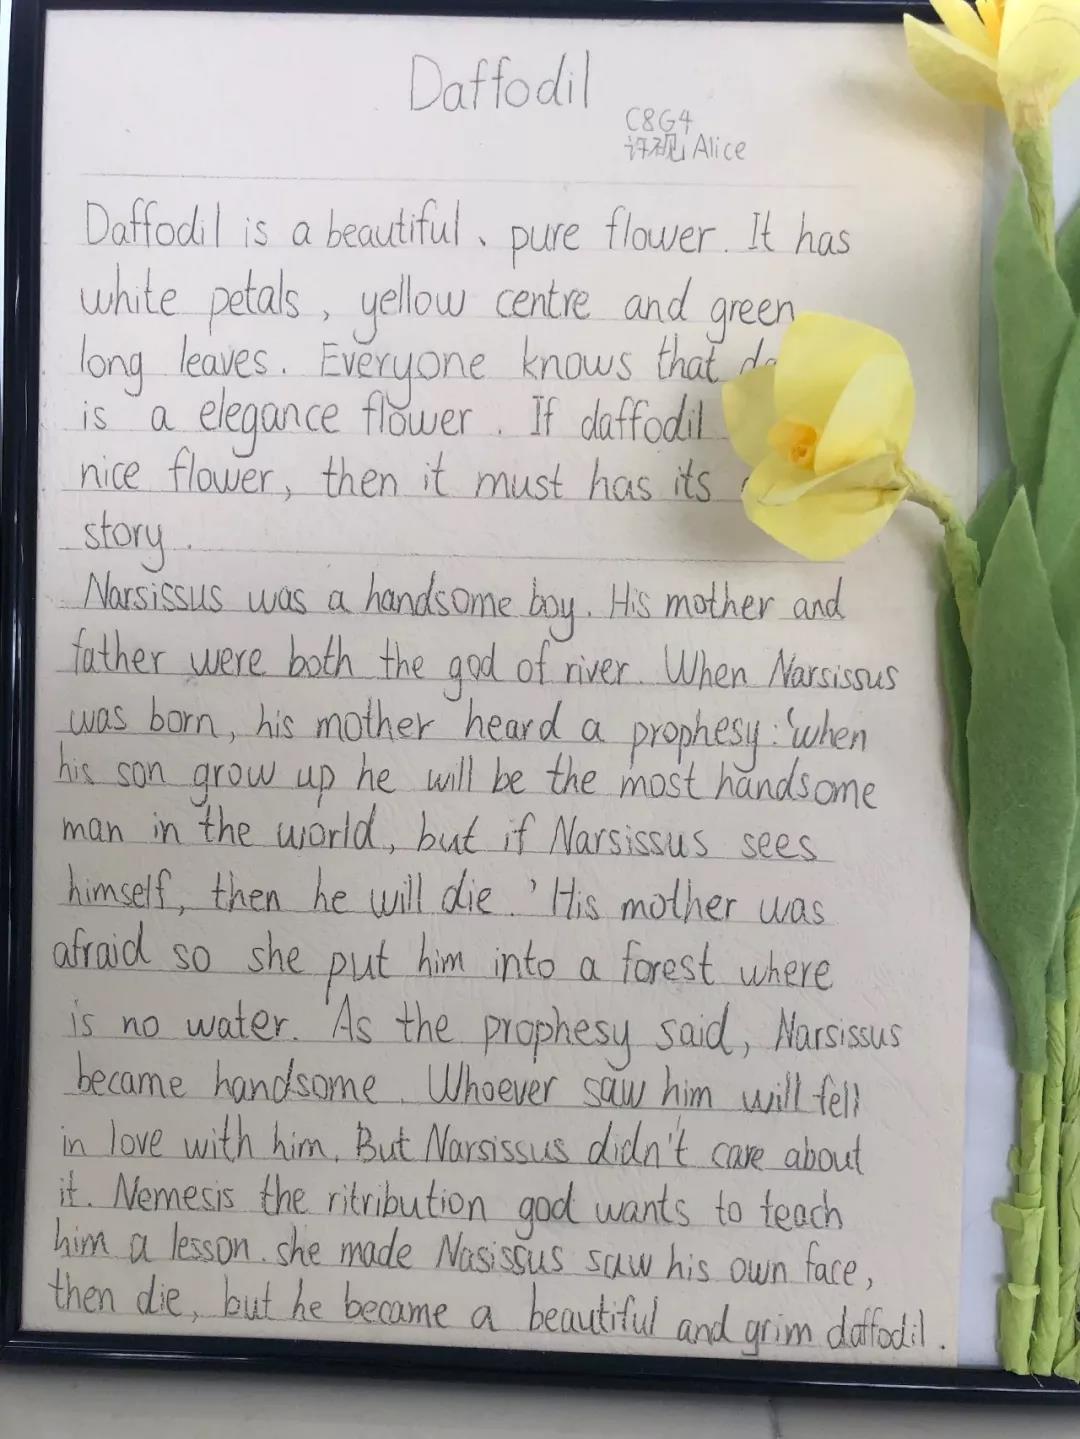 Daffodil
C8G4
许砚 Alice
Daffodil is a beautiful、pure flower. It has
white petals, yellow centre and green
long leaves. Everyone knows that
is a elegance flower. If daffodil
nice flower, then it must has its
story.
Narsissus was a handsome boy. His mother and
father were both the god of river. When Narsissus
was born, his mother heard a prophesy: 'when
his son grow up he will be the most handsome
man in the world, but if Narsissus sees
himself, then he will die.' His mother was
afraid so she put him into a forest where
is no water. As the prophesy said, Narsissus
became handsome. Whoever saw him will fell
in love with him. But Narsissus didn't care about
it. Nemesis the ritribution god wants to teach
him a lesson. she made Nasissus saw his own face,
then die, but he became a beautiful and grim daffodil.